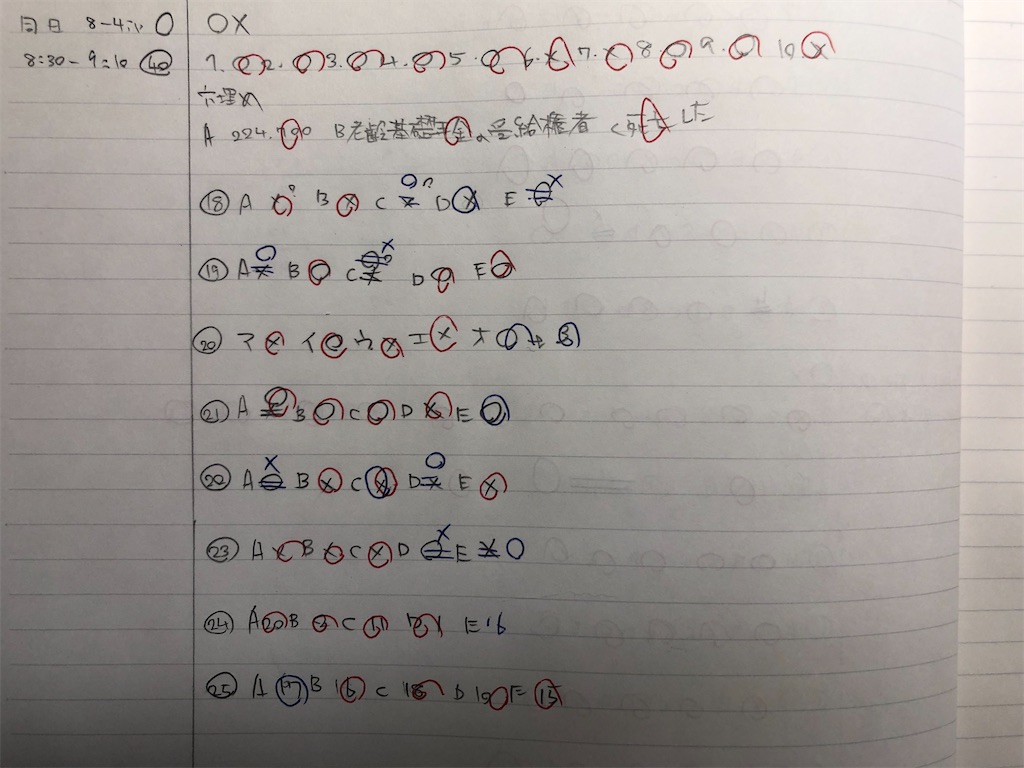 同日 8-4ⅳ ○ ○×
8:30-9:10 ㊵ 1. ○ 2. ○ 3. ○ 4. ○ 5. ○ 6. × 7. × 8. ○ 9. ○ 10 ×
穴埋め
A 224.700 B老齢基礎年金の受給権者 C死亡した
⑱ A × B × C × ○ D × E ○ ×
⑲ A × ○ B ○ C × D ○ E ○
⑳ ア × イ ○ ウ × エ × オ ○ B
㉑ A ○ B ○ C ○ D × E ○
⑳ A ○ × B × C × D × ○ E ×
㉓ A × B × C × D ○ × E × ○
㉔ A20 B C D E 16
㉕ A 17 B 16 C 18 D 19 E 15